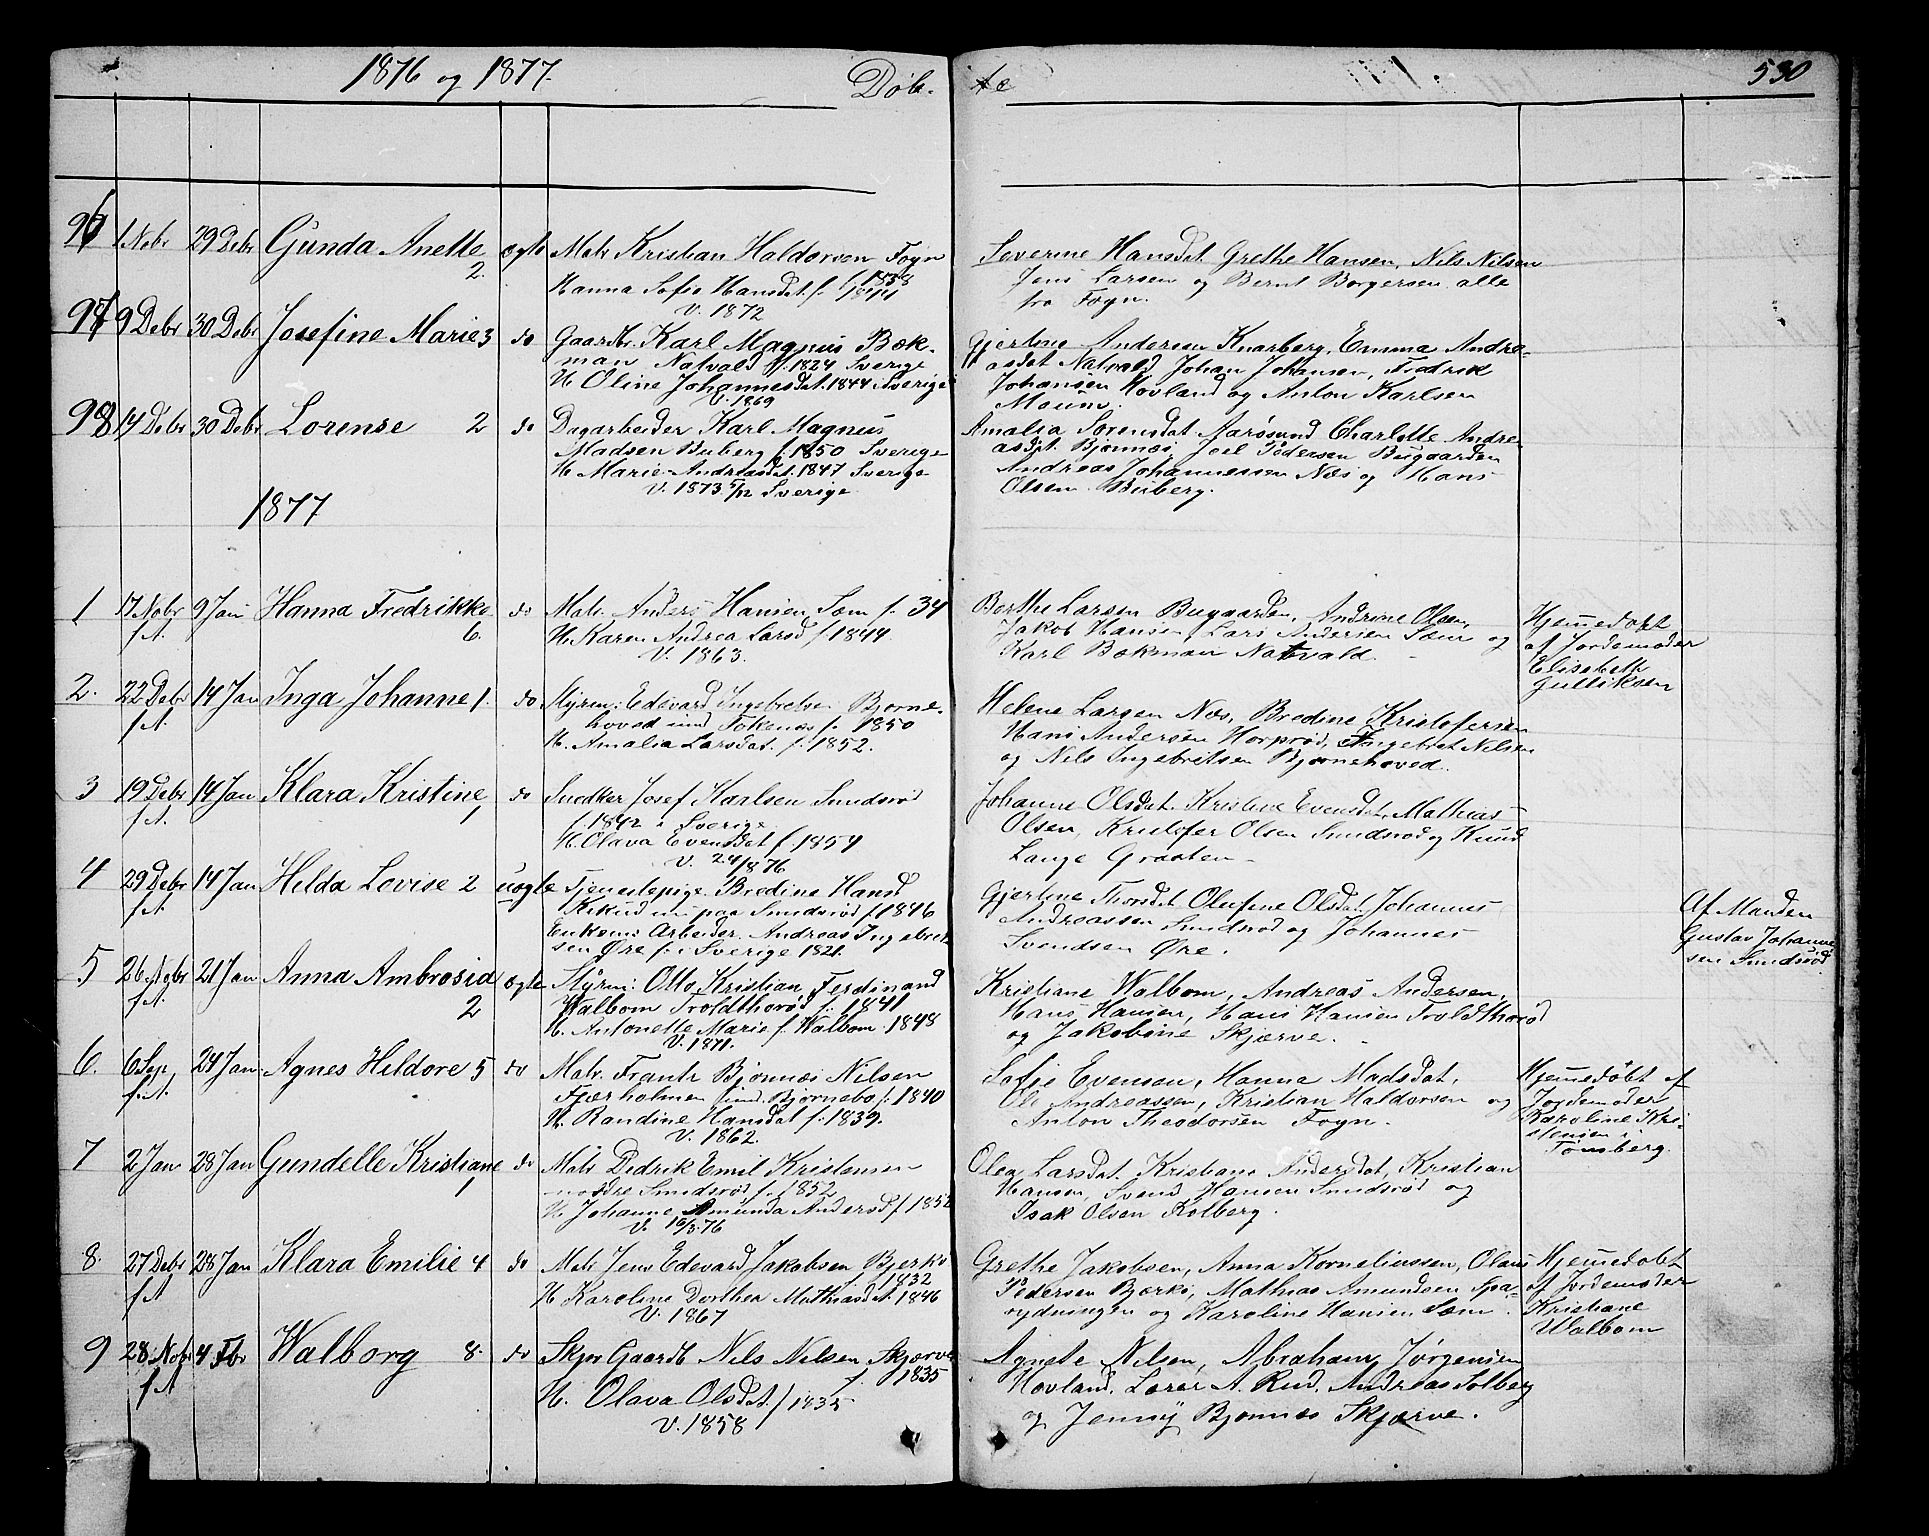 1876 og 1877. Døb- te 530
96 1 Nobr 29 Debr Gunda Anette 2. ægte Matr Kristian Haldorsen Fogn f. 1838
Hanna Sofie Hansdat. f. 1841
V. 1872
Severine Hansdat. Grethe Hansen, Nils Nilsen
Jens Larsen og Bernt Borgersen alle
fra Fogn.
97 9 Debr 30 Debr Josefine Marie 3 do Gaardbr. Karl Magnus Bøk-
man Natvald f. 1824 Sverige
H. Oline Johannesdat. 1844 i Sverige
V. 1869
Gjertine Andersen Knarberg, Emma Andre-
asdat Natvald Johan Johansen, Fredrik
Johansen Hovland og Anton Karlsen
98 14 Debr 30 Debr Lorense 2 do Dagarbeider Karl Magnus
Madsen Buberg f. 1850 Sverige
H. Marie Andreasdat. 1847 Sverige
V. 1873 5/12 Sverige
Amalia Sorensdat. Charlotte Andre-
asdat. Bjønnæs, Joel Pedersen Bugaarden
Andreas Johannessen Næs og Hans
Olsen Buberg.
1877
1 17 Nobr f.A. 9 Jan Hanna Fredrikke 6. do Matr. Anders Hansen Sæm f. 34
H. Karen Andrea Larsd f. 1844.
V. 1863.
Berthe Larsen Bugaarden, Andrine Olsen,
Jakob Hansen, Lars Andersen Sæm og
Karl Bøkman Natvald.
Hjemedøbt
af Jordemoder
Elisabeth
Gulliksen
2. 22 Debr f.A. 14 Jan Inga Johanne 1. do Styrm: Edevard Ingebretsen Bjørne-
hoved ind Fokenæs f. 1850
H. Amalia Larsdat. f. 1852.
Helene Larsen Næs, Bredine Kristofersen
Hans Andersen Horprød, Ingebret Nilsen
og Nils Ingebritsen Bjørnehoved.
3 19 Debr f.A. 14 Jan Klara Kristine 1 do Snedker Josef Karlsen Smidsrød
f. 1842 i Sverige
H. Olava Evensdat f. 1854
V. 24/8 76
Johanne Olsdat. Kristine Evensdat. Mathias
Olsen, Kristofer Olsen Smidsrød og Knud
Lange Graaten
4 29 Debr f.A. 14 Jan Hilda Lovise 2 uægte Tjenestepige Bredine Hansd
Kikud in paa Smidsrød f. 1846
Enkem: Arbeider Andreas Ingebret
sen Øre f. i Sverige 1821.
Gjertine Thorsdat Olufine Olsdat. Johannes
Andreassen Smidsrød og Johannes
Svendsen Øre.
Af Manden
Gustav Johanne
sen Smidsrød
5 26 Nobr f.A. 21 Jan Anna Ambrosia 2 ægte Styrm: Otto Kristian Ferdinand
Walbom Troldthorød f. 1841
H. Antonette Marie f. Walbom. 1848
V. 1871.
Kristiane Walbom, Andreas Andersen,
Hans Hansen, Hans Hansen Troldthorød
og Jakobine Skjærve.
6. 6 Sep. f.A. 24 Jan Agnes Hildore 5 do Matr. Frantz Bjønnæs Nilsen
Fjærholmen ind. Bjørnebo f. 1840
H. Randine Hansdat f. 1839.
V. 1862.
Sofie Evensen, Hanna Madsdat,
Ole Andreassen, Kristian Haldorsen og
Anton Theodorsen Fogn.
Hjemedøbt af
Jordemoder
Karoline Kri-
stensen i
Tønsberg.
7 2 Jan 28 Jan Gundelle Kristiane 1 do Matr Didrik Emil Kristensen
nordre Smidsrød, f. 1852
H. Johanne Amunda Andersd f. 1852
V. 16/3 76
Olea Larsdat. Kristiane Andersdat, Kristian
Hansen, Svend Hansen Smidsrød og
Isak Olsen Kolberg.
8. 27 Debr f.A 28 Jan Klara Emilie 4 do Matr Jens Edevard Jakobsen Bjerkø
f. 1832
H. Karoline Dorthea Mathiasdat. 1846
V. 1867
Grethe Jakobsen, Anna Korneliussen, Olaus
Pedersen Bærkø, Mathias Amundsen Spa-
rydningen og Karoline Hansen Sæm.
Hjemedøbt
af Jordemoder
Kristiane
Walbom
9 28 Nobr f.A 4 Fbr Walborg 8. do Skpr Gaardb Nils Nilsen Skjærve
f. 1835
H. Olava Olsdat. f 1835
V. 1858
Agnete Nilsen, Abraham Jørgensen
Hovland. Lærer A. Rud. Andreas Solberg
og Jensy Bjønnæs Skjærve.